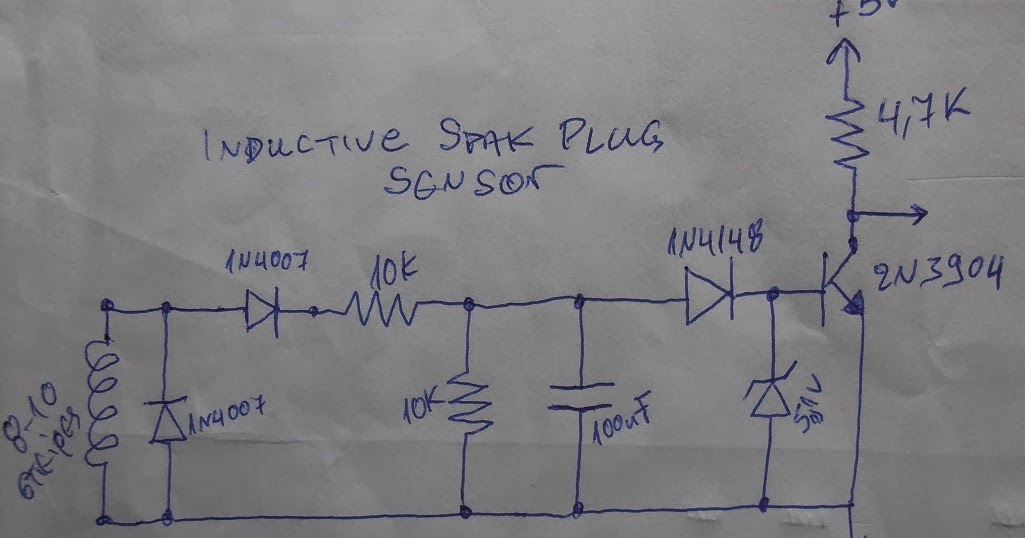 +5V
4,7K
INDUCTIVE SPAK PLUG
SENSOR
1N4007
10K
1N4148
2N3904
8-10
1N4007
10K
100nF
5,1V